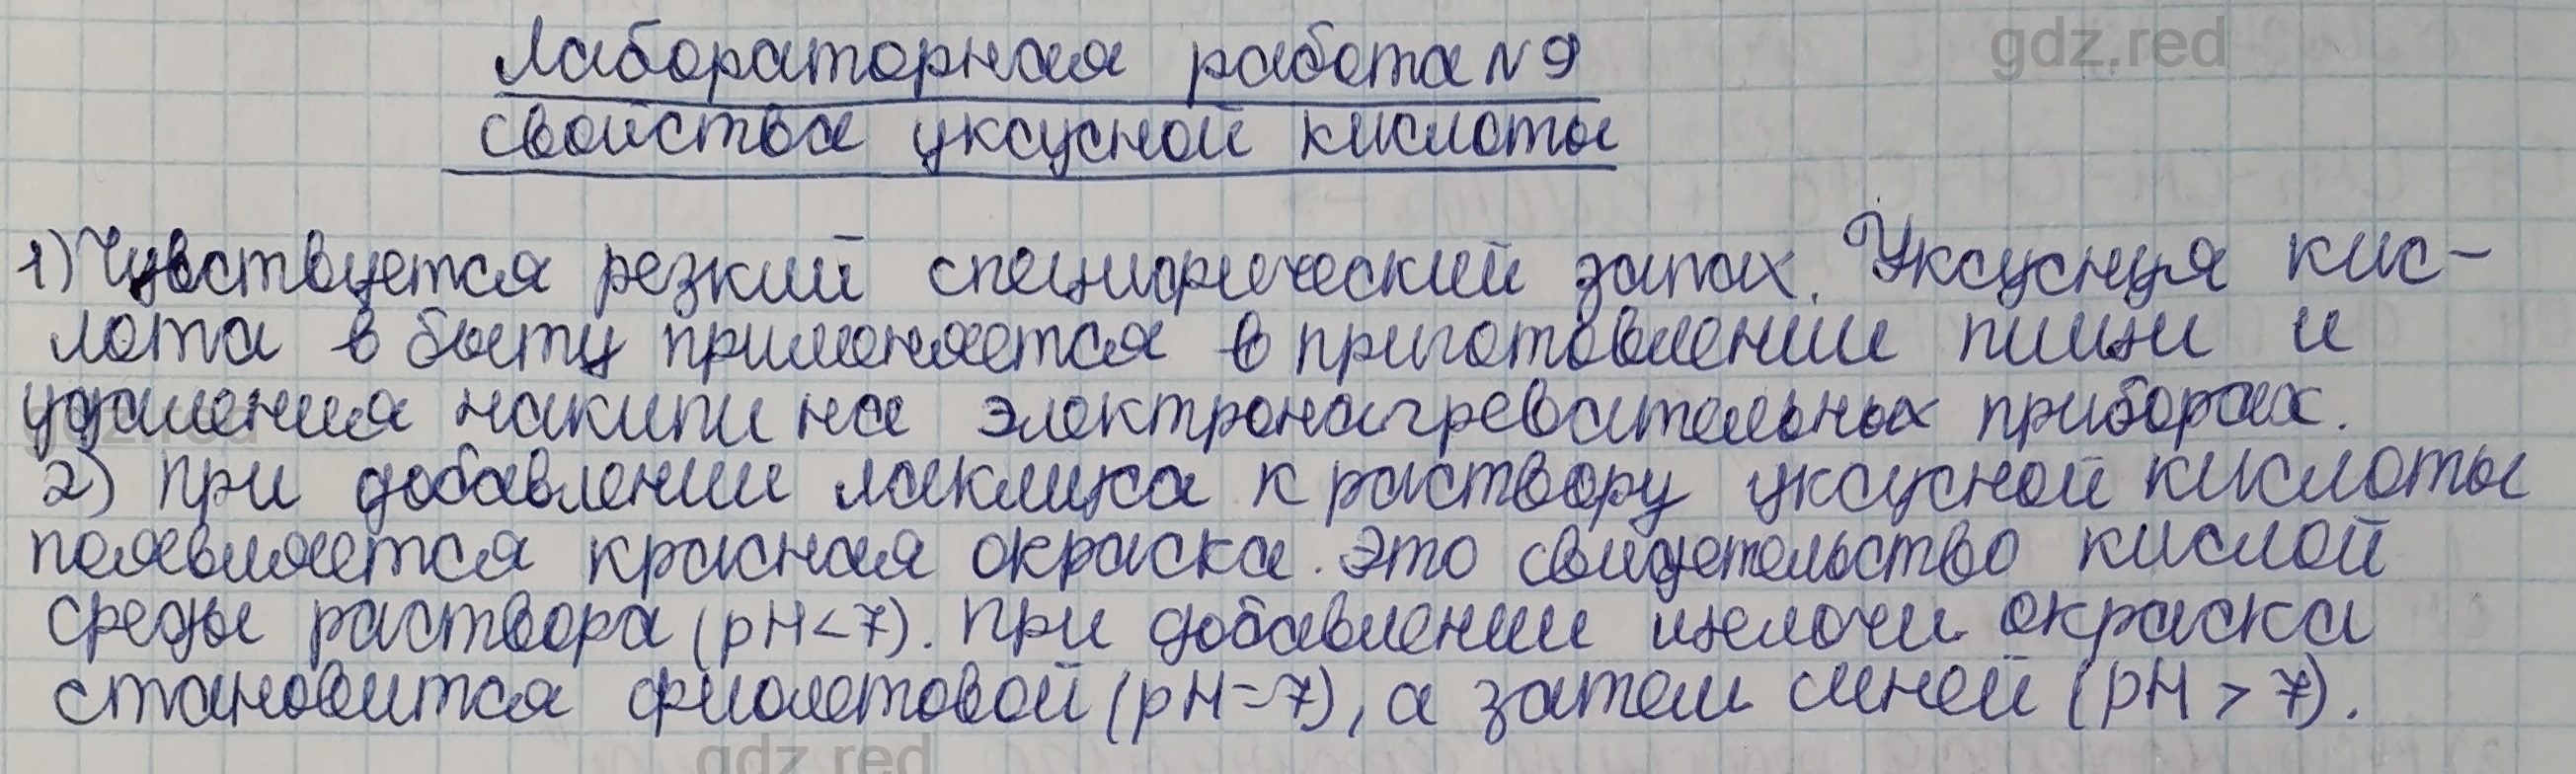 Лабораторная работа N 9
свойства уксусной кислоты
gdz.red
1) Чувствуется резкий специфический запах. Уксусная кис-
лота в быту применяется в приготовлении пищи и
удаления накипи на электронагревательных приборах.
gdz.red
2) При добавлении лакмуса к раствору уксусной кислоты
появляется красная окраска. Это свидетельство кислой
среды раствора (pH<7). При добавлении щелочи окраска
становится фиолетовой (pH=7), а затем синей (pH > 7).
gdz.red